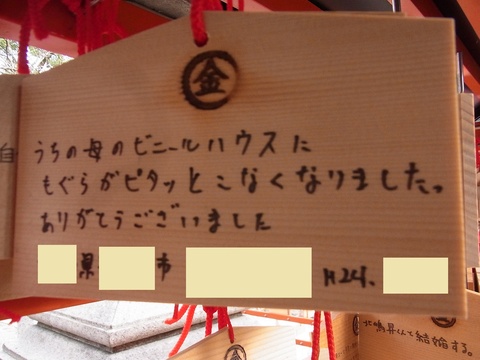 金
うちの母のビニールハウスに
もぐらがピタッとこなくなりました。
ありがとうございました
県 市 H24.
自
結婚する。